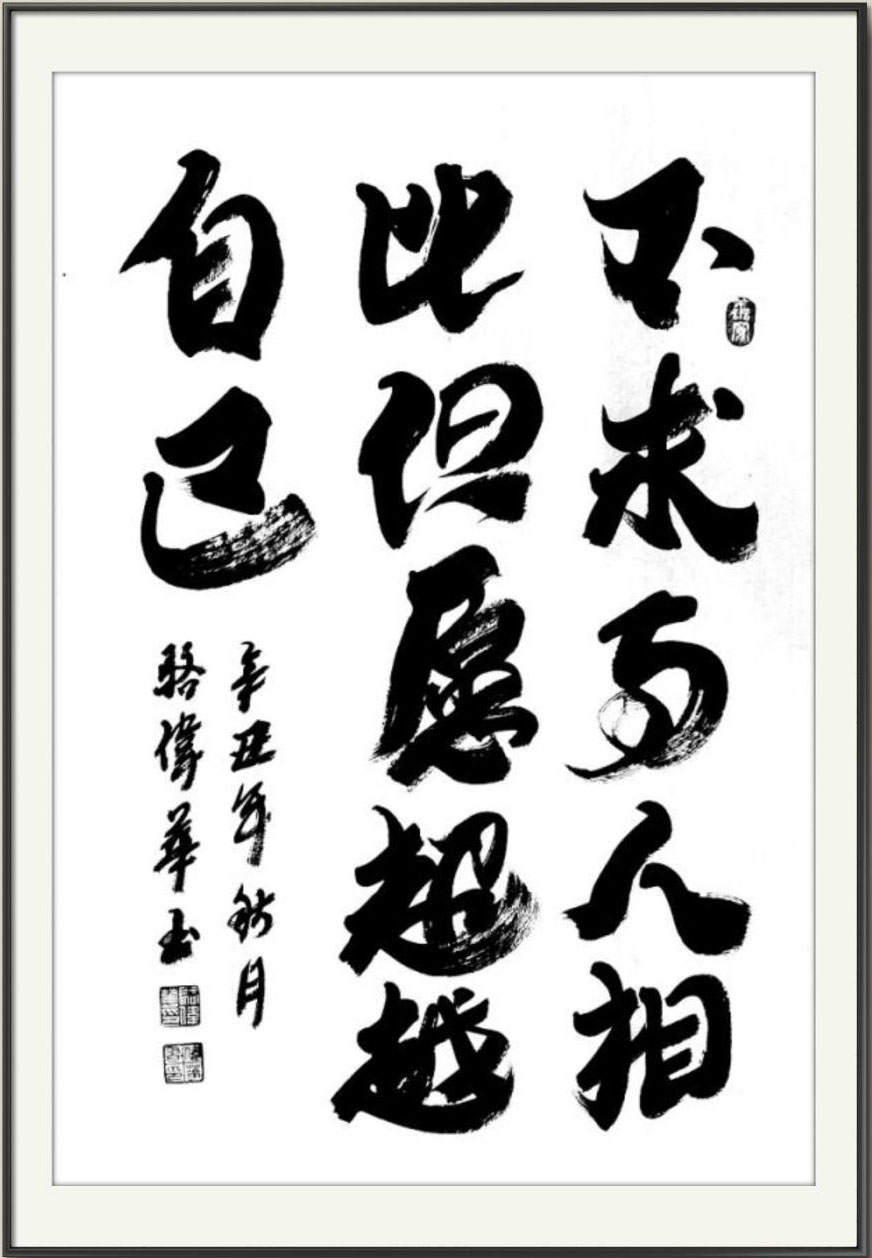 不求与人相
比但愿超越
自己
辛丑年秋月
駱偉華书